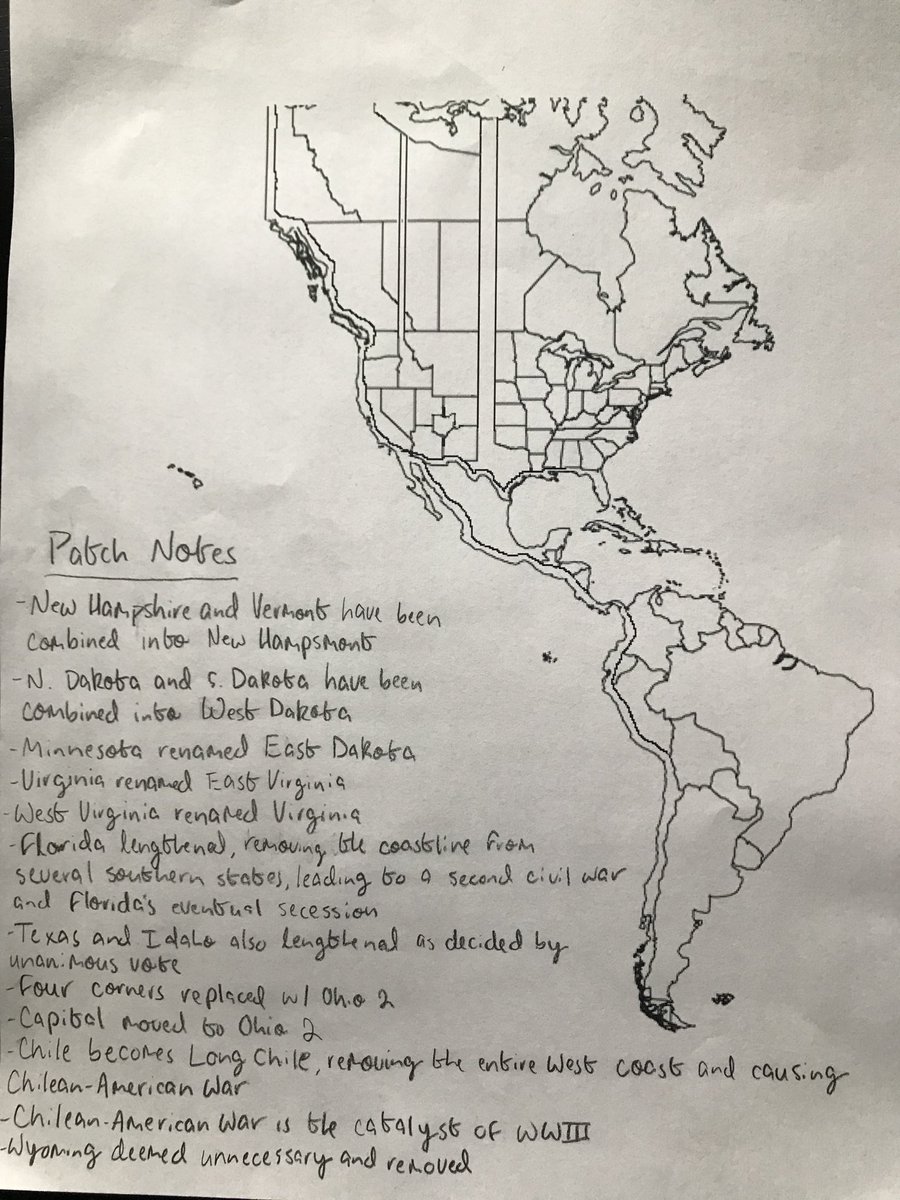 Patch Notes
- New Hampshire and Vermont have been
combined into New Hampsmont
- N. Dakota and S. Dakota have been
combined into West Dakota
- Minnesota renamed East Dakota
- Virginia renamed East Virginia
- West Virginia renamed Virginia
- Florida lengthened, removing the coastline from
several southern states, leading to a second civil war
and Florida's eventual secession
- Texas and Idaho also lengthened as decided by
unanimous vote
- Four corners replaced w/ Ohio 2
- Capital moved to Ohio 2
- Chile becomes Long Chile, removing the entire West coast and causing
Chilean-American War
- Chilean-American War is the catalyst of WWIII
- Wyoming deemed unnecessary and removed